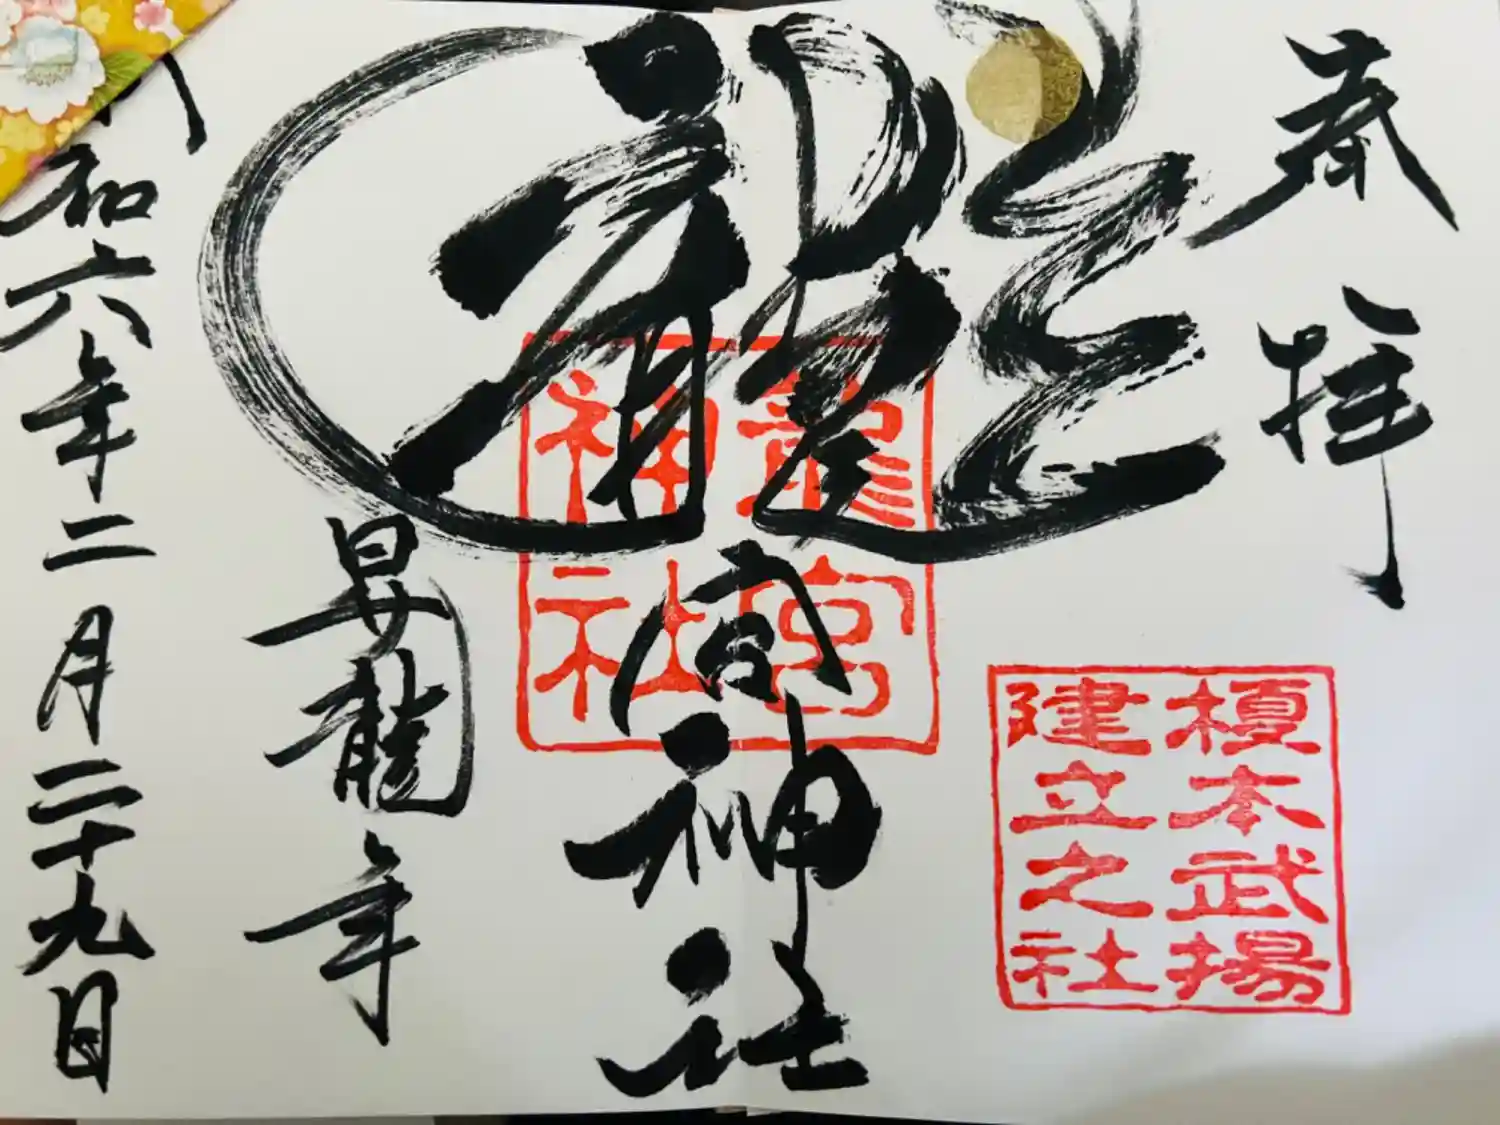 奉拝
龍宮神社
昇龍年
令和六年二月二十九日
龍宮
神社
榎本武揚
建立之社